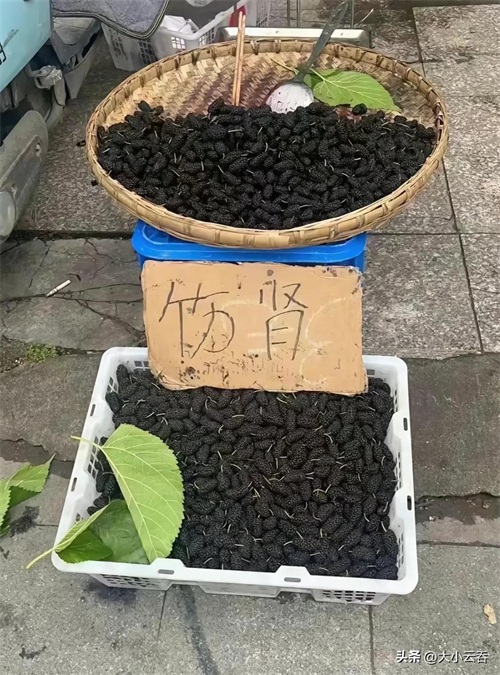 伤肾
头条 @大小云吞